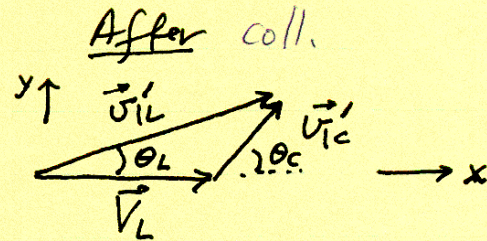 After coll.
y v⃗'₁L v⃗'₁c
θL θc x
V⃗L